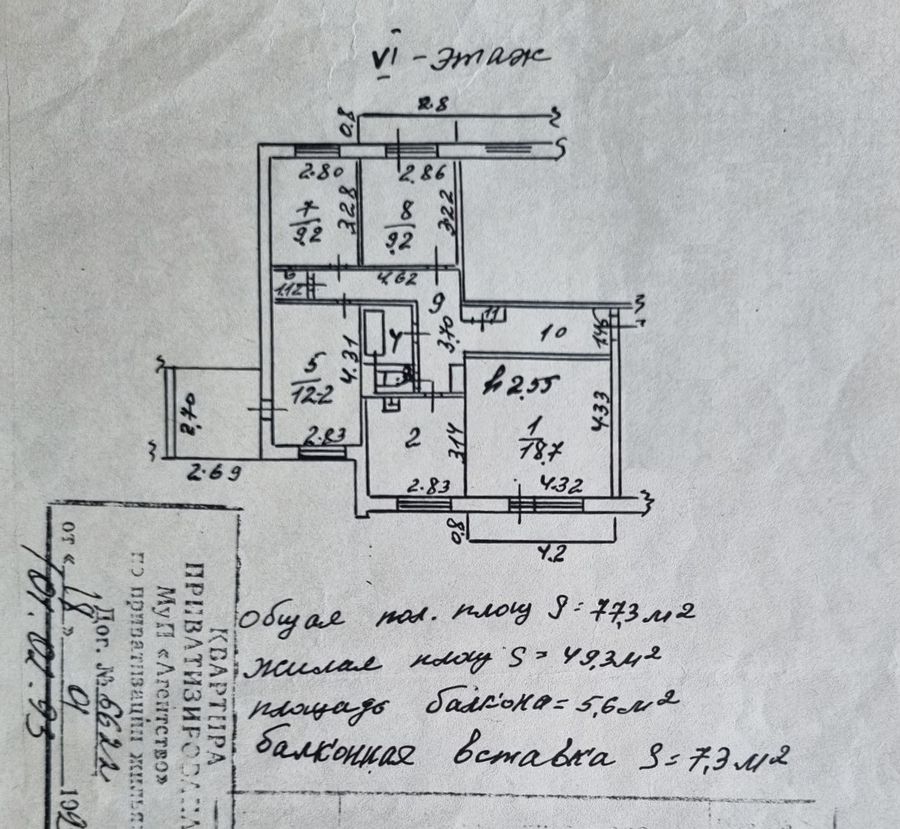 VI - этаж
0.8
2.8
2.80
2.86
3.28
3.22
7
9.2
8
9.2
6
1.12
4.62
9
11
3.70
10
1.45
4
4.31
5
12.2
h 2.55
4.33
2.70
1
18.7
2
3.14
2.83
2.69
2.83
4.32
0.8
4.2
общая пол. площ S = 77,3 м2
жилая площ S = 49,3 м2
площадь балкона = 5,6 м2
балконная вставка S = 7,3 м2
КВАРТИРА
ПРИВАТИЗИРОВАНА
МуП «Агентство»
по приватизации жилья
Дог. № 6622
от « 18 » 01 199